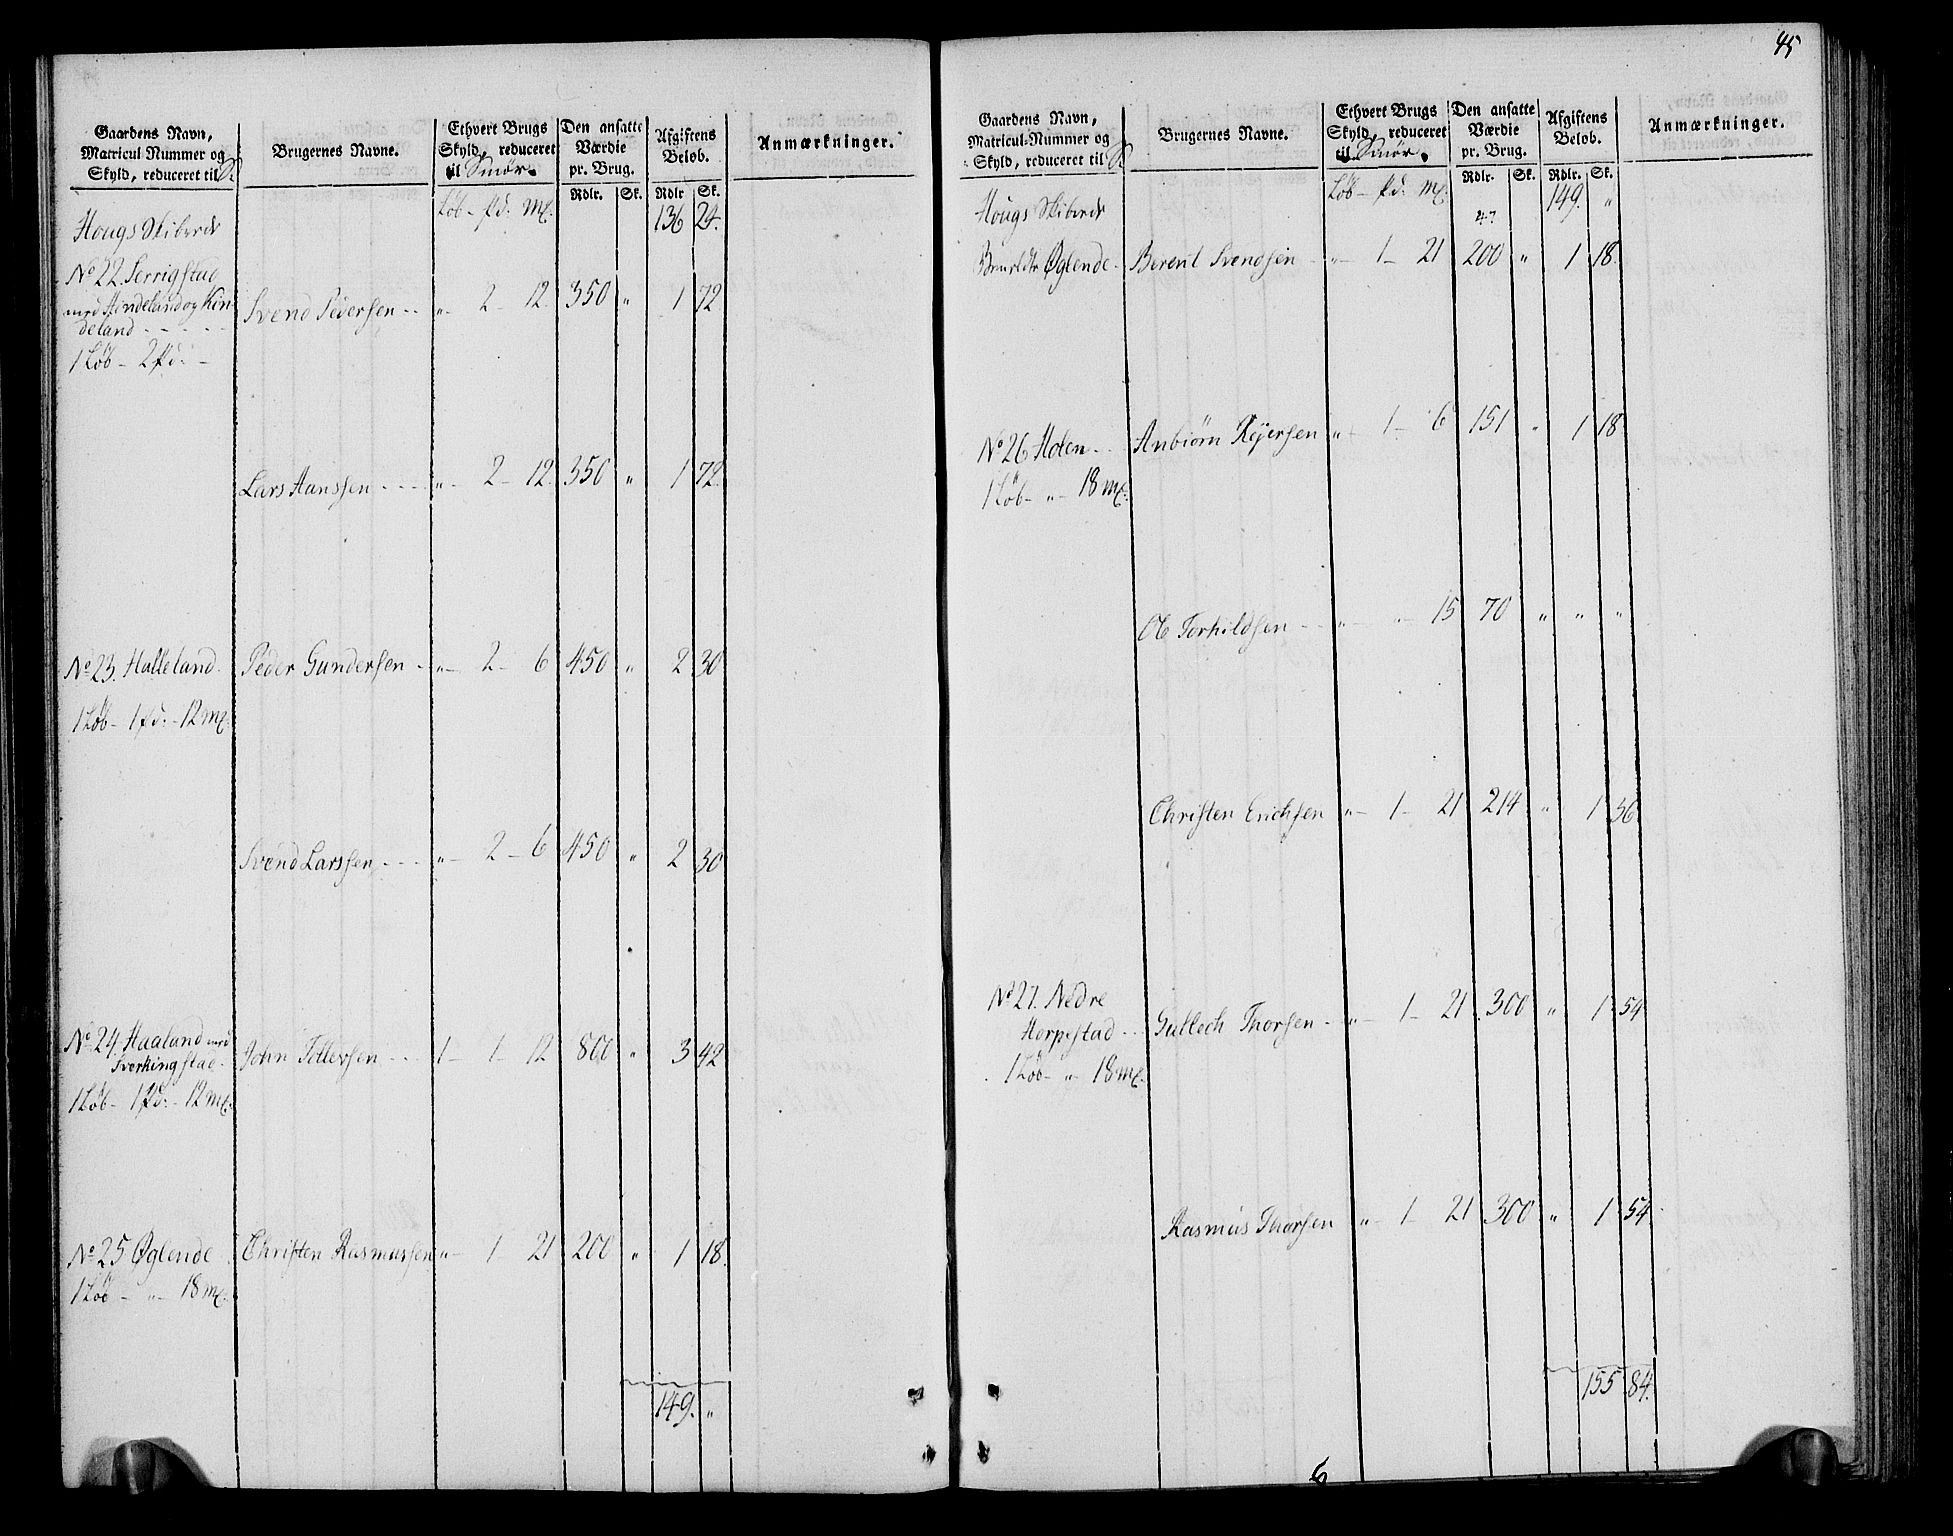 Gaardens Navn,
Matricul-Nummer og
Skyld, reduceret til S.
Brugernes Navne.
Ethvert Brugs
Skyld, reduceret
til Smör.
Den ansatte
Værdie
pr. Brug.
Afgiftens
Beløb.
Anmærkninger.
Rdlr. Sk. Rdlr Sk.
Löb - pd: mk.
Hougs Skibrede 136 24.
No 22. Serrigstad
deland
Svend Pedersen „ 2 - 12 350 „ 1 72
1 Löb - 2 pd: -
Lars Hanssen „ 2 - 12. 350 „ 1 72.
No 23. Halleland. Peder Gundersen „ 2 - 6 450 „ 2 30
1 Löb - 1 pd: - 12 mk.
Svend Larssen „ 2 - 6 450 „ 2 30
No 24. Haaland med
Sverkingstad John Tollersen 1 - 1 - 12 800 „ 3 42
1 Löb - 1 pd: - 12 mk.
No 25 Øglende Christen Rasmussen „ 1 - 21 200 „ 1 18.
1 Löb - „ - 18 mk.
149. „
45
Gaardens Navn,
Matricul-Nummer og
Skyld, reduceret til S.
Brugernes Navne.
Ethvert Brugs
Skyld, reduceret
til Smör.
Den ansatte
Værdie
pr. Brug.
Afgiftens
Beløb.
Anmærkninger.
Rdlr. Sk. Rdlr. Sk.
Löb - pd: mk.
Hougs Skibrede 149. „
Øglende Berent Svendsen „ 1 - 21 200 „ 1 18.
No 26 Holen Anbiørn Rejersen „ 1 - 6 151 „ 1 18.
1 Löb - „ - 18 mk.
Ole Torkildsen „ „ 15 70 „ „ „
Christen Erichsen „ 1 - 21 214 „ 1 36
No 27. Nedre
Herpestad Gullech Thorsen „ 1 - 21. 300 „ 1 54
1 Löb - „ - 18 mk.
Rasmus Thorsen „ 1 - 21 300 „ 1 54
155 84.